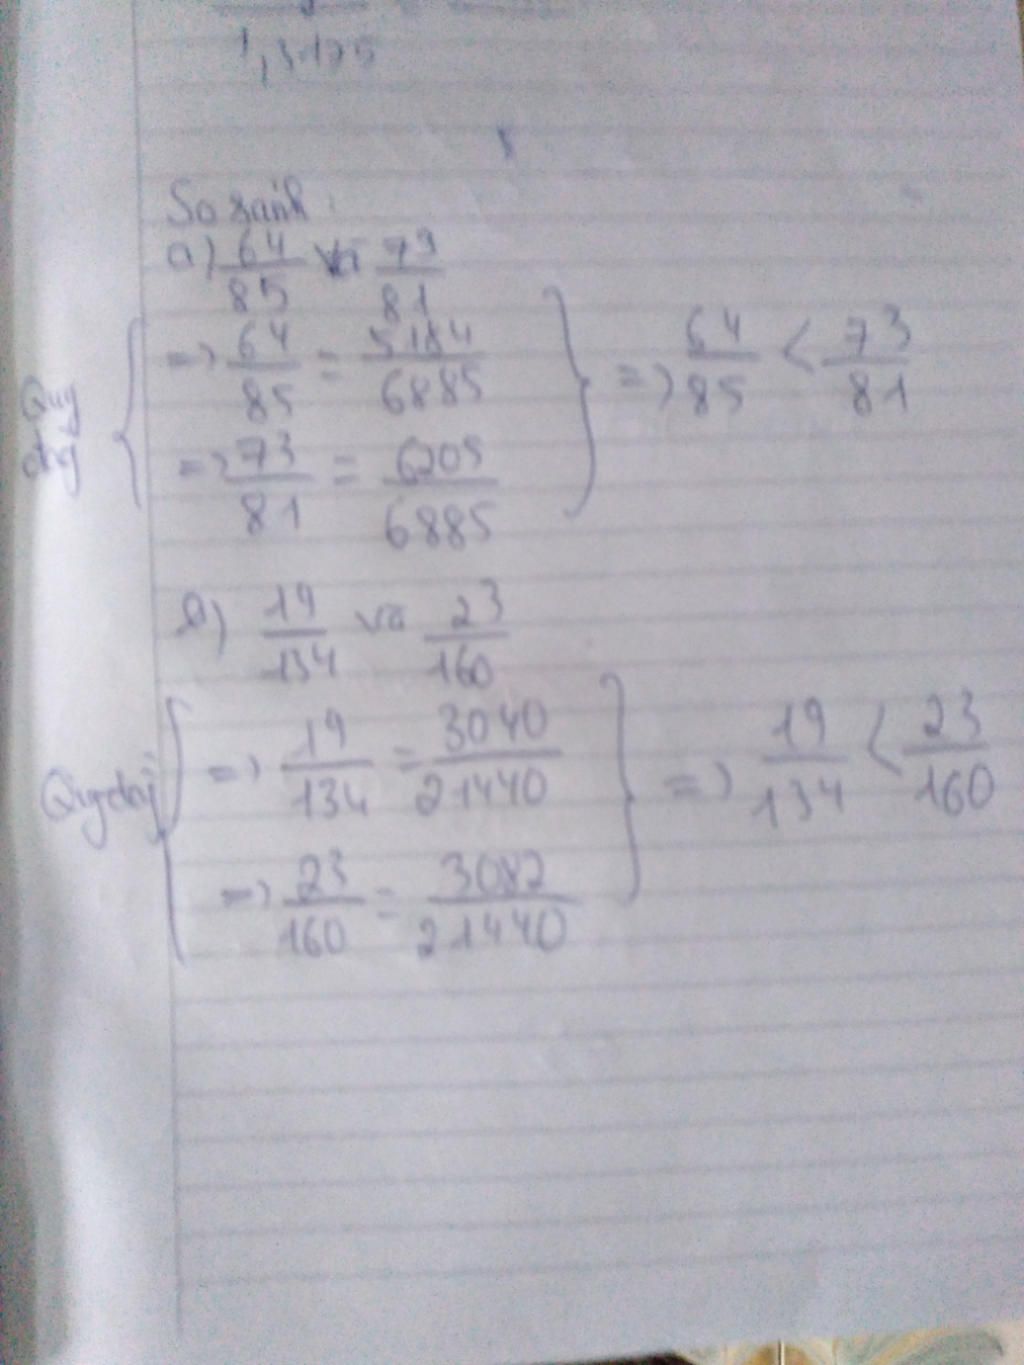 1,3.125
So sánh:
a) 64/85 và 73/81
Quy đg
=> 64/85 = 5184/6885
=> 73/81 = 6205/6885
=> 64/85 < 73/81
b) 19/134 và 23/160
Quy đg
=> 19/134 = 3040/21440
=> 23/160 = 3082/21440
=> 19/134 < 23/160